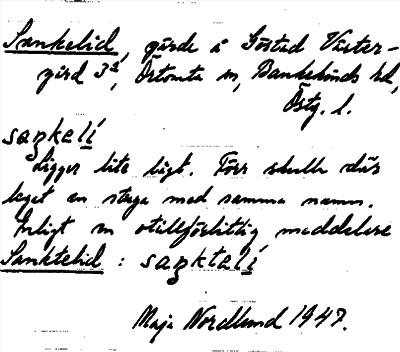 Sankelid, gärde å Göstad Väster-
gård 3:1, Örtomta sn, Bankekinds hd,
Östg. l.
saŋkelí
Ligger lite lågt. Förr skulle där
legat en stuga med samma namn.
Enligt en otillförlitlig meddelare
Sanktelid : saŋktelí
Maja Nordlund 1947.